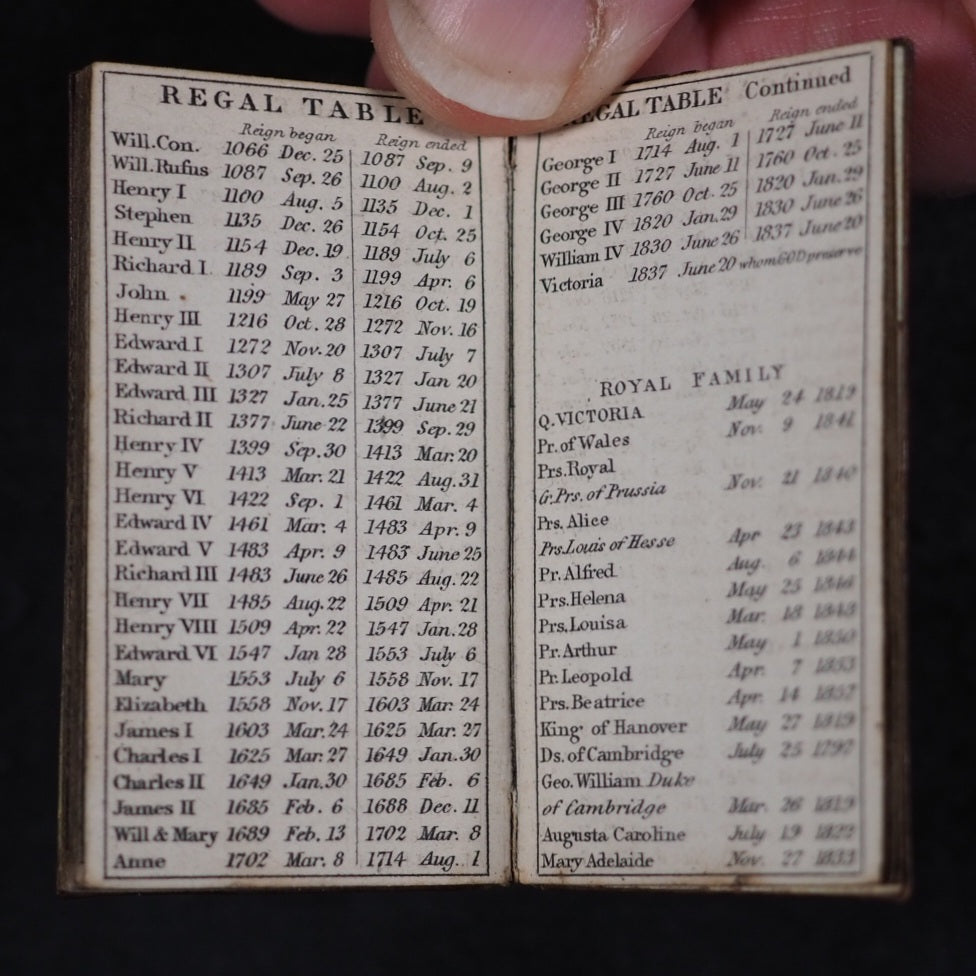 REGAL TABLE
Reign began Reign ended
Will.Con. 1066 Dec. 25 1087 Sep. 9
Will.Rufus 1087 Sep. 26 1100 Aug. 2
Henry I 1100 Aug. 5 1135 Dec. 1
Stephen 1135 Dec. 26 1154 Oct. 25
Henry II 1154 Dec. 19 1189 July 6
Richard I. 1189 Sep. 3 1199 Apr. 6
John 1199 May 27 1216 Oct. 19
Henry III 1216 Oct. 28 1272 Nov. 16
Edward I 1272 Nov. 20 1307 July 7
Edward II 1307 July 8 1327 Jan 20
Edward III 1327 Jan. 25 1377 June 21
Richard II 1377 June 22 1399 Sep. 29
Henry IV 1399 Sep. 30 1413 Mar. 20
Henry V 1413 Mar. 21 1422 Aug. 31
Henry VI 1422 Sep. 1 1461 Mar. 4
Edward IV 1461 Mar. 4 1483 Apr. 9
Edward V 1483 Apr. 9 1483 June 25
Richard III 1483 June 26 1485 Aug. 22
Henry VII 1485 Aug. 22 1509 Apr. 21
Henry VIII 1509 Apr. 22 1547 Jan. 28
Edward VI 1547 Jan 28 1553 July 6
Mary 1553 July 6 1558 Nov. 17
Elizabeth 1558 Nov. 17 1603 Mar. 24
James I 1603 Mar. 24 1625 Mar. 27
Charles I 1625 Mar. 27 1649 Jan. 30
Charles II 1649 Jan. 30 1685 Feb. 6
James II 1685 Feb. 6 1688 Dec. 11
Will & Mary 1689 Feb. 13 1702 Mar. 8
Anne 1702 Mar. 8 1714 Aug. 1
REGAL TABLE Continued
Reign began Reign ended
George I 1714 Aug. 1 1727 June 11
George II 1727 June 11 1760 Oct. 25
George III 1760 Oct. 25 1820 Jan. 29
George IV 1820 Jan. 29 1830 June 26
William IV 1830 June 26 1837 June 20
Victoria 1837 June 20 whom GOD preserve
ROYAL FAMILY
Q.VICTORIA May 24 1819
Pr. of Wales Nov. 9 1841
Prs.Royal
G.Prs. of Prussia Nov. 21 1840
Prs. Alice
Prs.Louis of Hesse Apr 25 1843
Pr. Alfred Aug. 6 1844
Prs. Helena May 25 1846
Prs. Louisa Mar. 18 1848
Pr. Arthur May 1 1850
Pr. Leopold Apr. 7 1853
Prs. Beatrice Apr. 14 1857
King of Hanover May 27 1819
Ds. of Cambridge July 25 1797
Geo. William Duke
of Cambridge Mar. 26 1819
Augusta Caroline July 19 1822
Mary Adelaide Nov. 27 1833